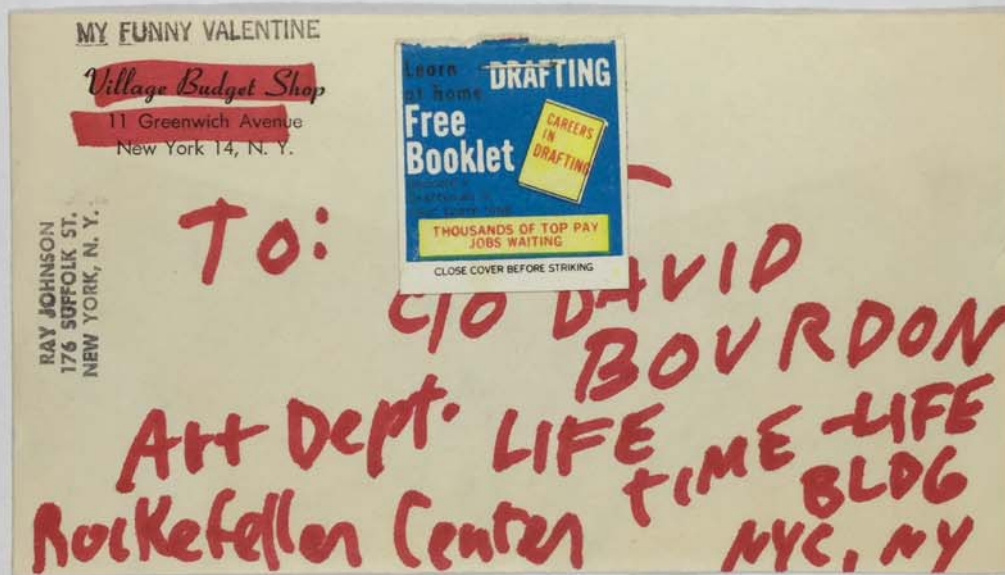 MY FUNNY VALENTINE
Village Budget Shop
11 Greenwich Avenue
New York 14, N. Y.
RAY JOHNSON
176 SUFFOLK ST.
NEW YORK, N. Y.
Learn
at home
DRAFTING
Free
Booklet
CAREERS
IN
DRAFTING
THOUSANDS OF TOP PAY
JOBS WAITING
CLOSE COVER BEFORE STRIKING
To:
C/O DAVID
BOURDON
Art Dept. LIFE
TIME-LIFE
BLDG
Rockefeller Center
NYC, NY